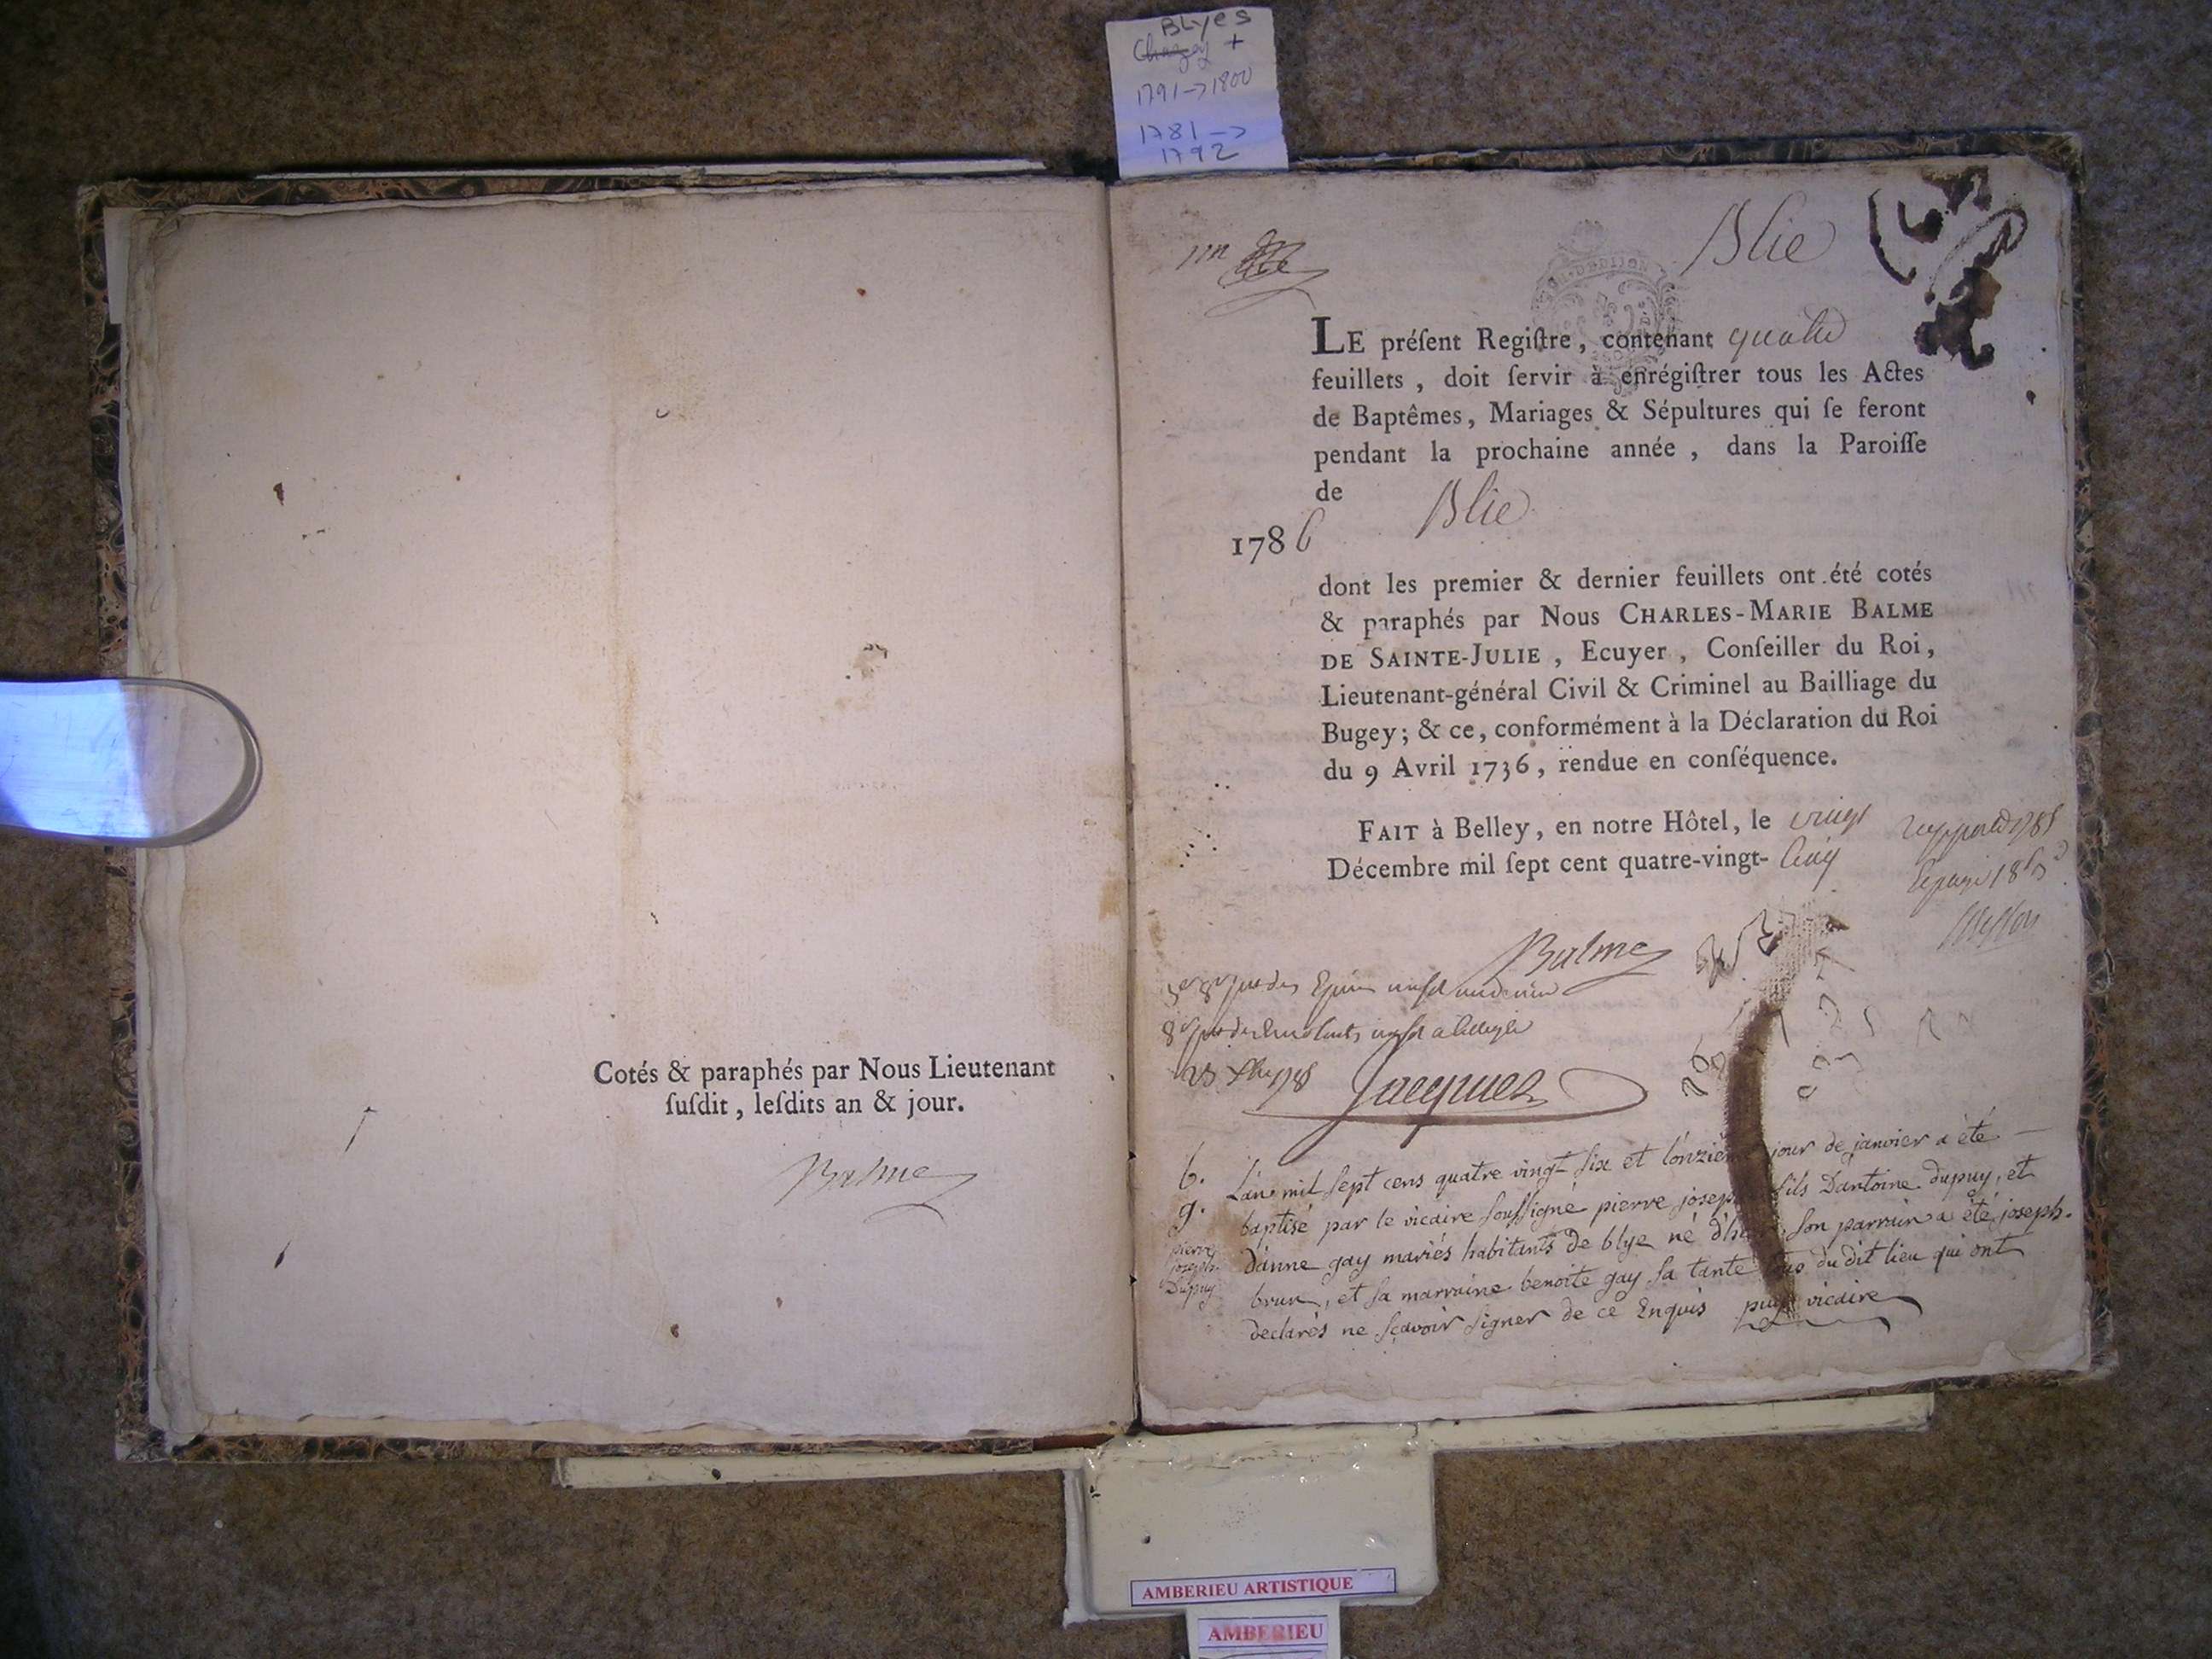 BLyes
Chazey +
1791->1800
1781->
1792
Cotés & paraphés par Nous Lieutenant
ſuſdit, leſdits an & jour.
Balme
Blie
LE préſent Regiſtre, contenant quatre
feuillets, doit ſervir à enrégiſtrer tous les Actes
de Baptêmes, Mariages & Sépultures qui ſe feront
pendant la prochaine année, dans la Paroiſſe
de Blie
1786
dont les premier & dernier feuillets ont été cotés
& paraphés par Nous CHARLES-MARIE BALME
DE SAINTE-JULIE, Ecuyer, Conſeiller du Roi,
Lieutenant-général Civil & Criminel au Bailliage du
Bugey; & ce, conformément à la Déclaration du Roi
du 9 Avril 1736, rendue en conſéquence.
FAIT à Belley, en notre Hôtel, le vingt
Décembre mil ſept cent quatre-vingt- cinq
Balme
Jacques
b. L'an mil sept cens quatre vingt six et l'onzieme jour de janvier a été
g. baptisé par le vicaire soussigné pierre joseph fils D'antoine dupuy, et
pierre joseph Dupuy
d'anne gay mariés habitants de blye né d'hier, son parrain a été joseph
brun, et sa marraine benoite gay sa tante tous du dit lieu qui ont
declarés ne sçavoir signer de ce Enquis vicaire
AMBERIEU ARTISTIQUE
AMBERIEU